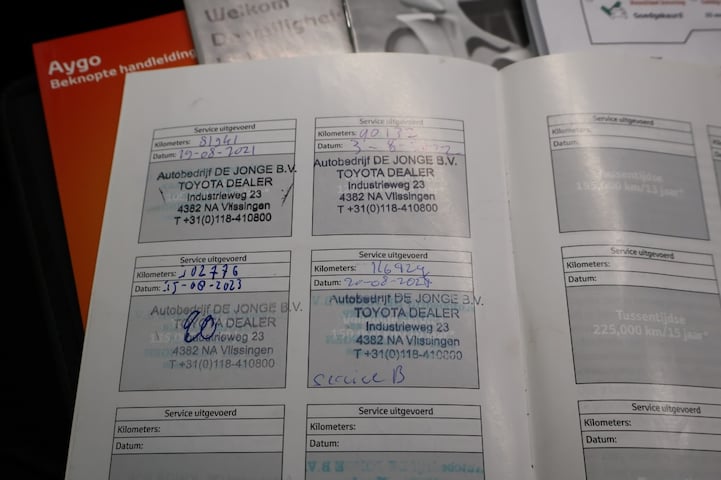 Aygo
Beknopte handleiding
Welkom
Goedgekeurd
Service uitgevoerd
Kilometers: 81941
Datum: 19-08-2021
Autobedrijf DE JONGE B.V.
TOYOTA DEALER
Industrieweg 23
4382 NA Vlissingen
T +31(0)118-410800
Service uitgevoerd
Kilometers: 90132
Datum: 3-8-
Autobedrijf DE JONGE B.V.
TOYOTA DEALER
Industrieweg 23
4382 NA Vlissingen
T +31(0)118-410800
Service uitgevoerd
Kilometers: 102776
Datum: 15-08-2023
Autobedrijf DE JONGE B.V.
TOYOTA DEALER
Industrieweg 23
4382 NA Vlissingen
T +31(0)118-410800
Service uitgevoerd
Kilometers:
Datum: 20-08-2024
Autobedrijf DE JONGE B.V.
TOYOTA DEALER
Industrieweg 23
4382 NA Vlissingen
T +31(0)118-410800
service B
Service uitgevoerd
Kilometers:
Datum:
Service uitgevoerd
Kilometers:
Datum:
Service uitgevoerd
Kilometers:
Datum:
Tussentijdse
195,000 km/13 jaar*
Service uitgevoerd
Kilometers:
Datum:
Tussentijdse
225,000 km/15 jaar*
Service uitgevoerd
Kilometers:
Datum: